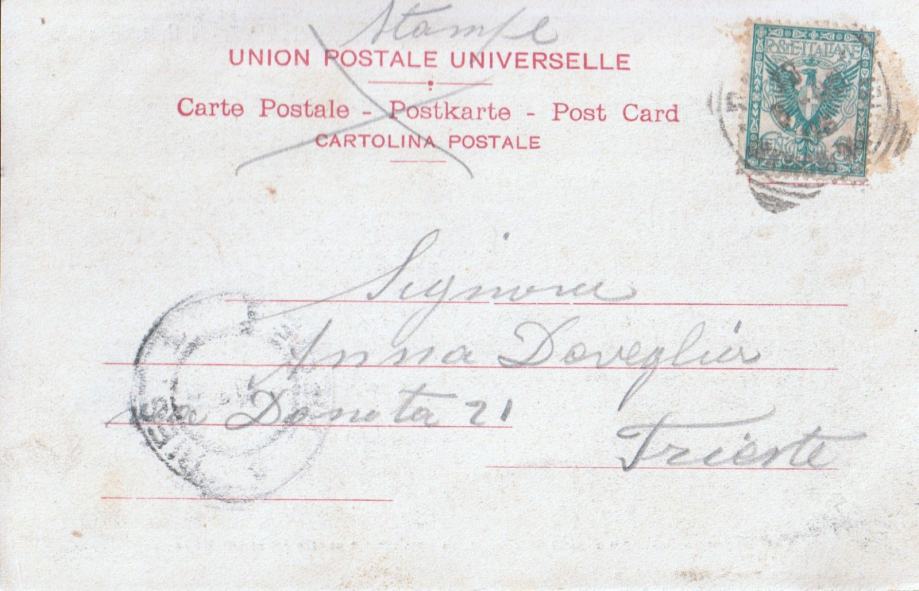 Stampe
UNION POSTALE UNIVERSELLE
Carte Postale - Postkarte - Post Card
CARTOLINA POSTALE
POSTE ITALIANE
Signora
Anna Doveglia
Donota 21
Trieste